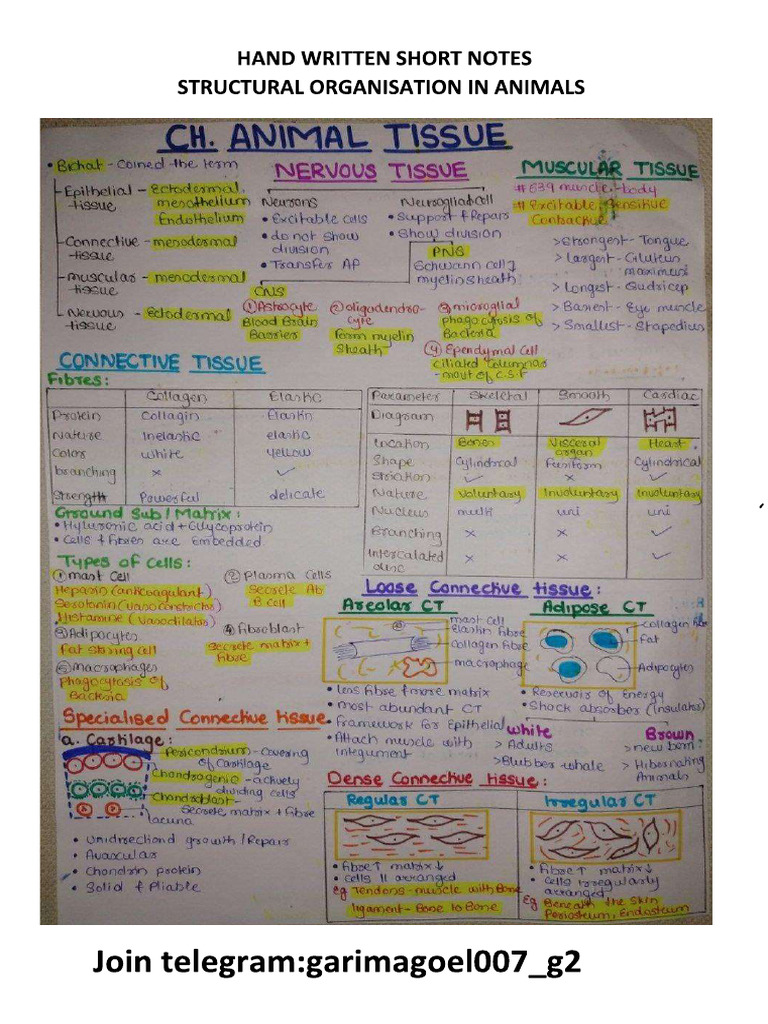 HAND WRITTEN SHORT NOTES
STRUCTURAL ORGANISATION IN ANIMALS
CH. ANIMAL TISSUE
• Bichat - coined the term
Epithelial - Ectodermal,
tissue mesothelium
Endothelium
Connective - mesodermal
tissue
muscular - mesodermal
tissue
Nervous - Ectodermal
tissue
NERVOUS TISSUE
Neurons
• Excitable cells
• do not show
division
• Transfer AP
Neuroglial cell
• Support & Repairs
• Show division
PNS
Schwann cell↓
myelin sheath
CNS
① Astrocyte
Blood Brain
Barrier
② oligodendro-
cyte
Form myelin
Sheath
③ microglial
phagocytosis of
Bacteria
④ Ependymal Cell
ciliated columnar
- mout of C.S.F
MUSCULAR TISSUE
# 639 muscle - body
# Excitable, Sensitive
Contractive
> Strongest - Tongue
> Largest - Gluteus
maximus
> Longest -
> Busiest - Eye muscle
> Smallest - Stapedius
CONNECTIVE TISSUE
Fibres:
Collagen Elastic
Protein Collagin Elastin
Nature Inelastic elastic
Color white yellow
branching × ✓
Strength Powerful delicate
Ground Sub / Matrix:
• Hyluronic acid + Glycoprotein
• Cells & fibres are Embedded.
Parameter Skeletal Smooth Cardiac
Diagram
Location Bones Visceral organ Heart
Shape Cylindrical Fusiform Cylindrical
Striation ✓ × ✓
Nature Voluntary Involuntary Involuntary
Nucleus multi uni uni
Branching × × ✓
Intercalated × × ✓
disc
Types of Cells:
① mast Cell
Heparin (anticoagulant)
Serotonin (vasoconstrictor)
Histamine (vasodilator)
② Plasma Cells
Secrete Ab
B cell
③ Adipocytes
Fat storing cell
④ Fibroblast
Secrete matrix +
fibre
⑤ macrophages
Phagocytosis of
Bacteria
Loose Connective tissue:
Areolar CT
mast cell
Elastin fibre
collagen fibre
macrophage
• Less fibre & more matrix
• most abundant CT
• Framework for Epithelial
• Attach muscle with
integument
Adipose CT
collagen
Fat
Adipocytes
• Reservoirs of Energy
• Shock absorber (Insulator)
white
> Adults
> Blubber whale
Brown
> new born
> Hibernating
Animals
Specialised Connective tissue
a. Cartilage:
Pericondrium - Covering
of cartilage
Chondrogenic - actively
dividing cells
Chondroblast -
Secrete matrix + fibre
lacuna
• Unidirectional growth / Repair
• Avascular
• Chondrin protein
• Solid & Pliable
Dense Connective tissue:
Regular CT
• fibre ↑ matrix ↓
• cells || arranged
Eg Tendons - muscle with Bone
ligament - Bone to Bone
Irregular CT
• Fibre ↑ matrix ↓
• cells irregularly
arranged
Eg Beneath the Skin
Periosteum, Endosteum
Join telegram:garimagoel007_g2